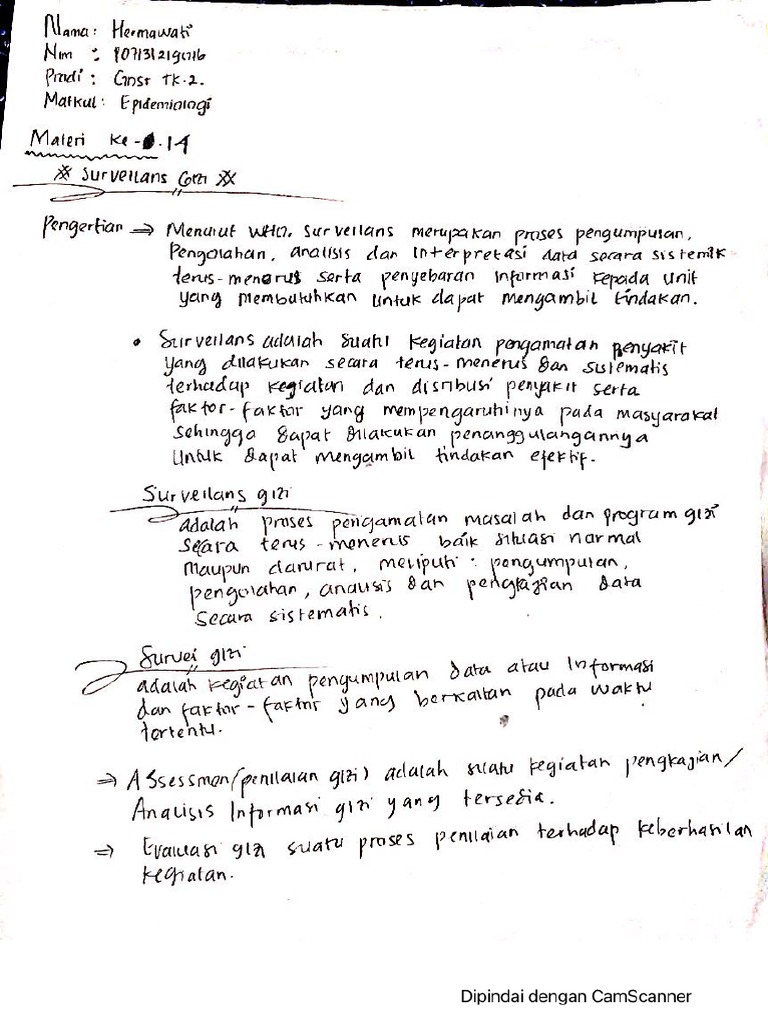 Nama : Hermawati
Nim : PO7131219016
Prodi : Gizi TK.2.
Matkul : Epidemiologi
Materi Ke - 14
** Surveilans Gizi **
Pengertian → Menurut WHO. Surveilans merupakan proses pengumpulan,
Pengolahan, analisis dan interpretasi data secara sistemik
terus-menerus serta penyebaran informasi kepada unit
yang membutuhkan untuk dapat mengambil tindakan.
• Surveilans adalah suatu kegiatan pengamatan penyakit
yang dilakukan secara terus-menerus dan sistematis
terhadap kegiatan dan distribusi penyakit serta
faktor-faktor yang mempengaruhinya pada masyarakat
sehingga dapat dilakukan penanggulangannya
untuk dapat mengambil tindakan efektif.
Surveilans gizi
adalah proses pengamatan masalah dan program gizi
secara terus-menerus baik situasi normal
maupun darurat, meliputi : pengumpulan,
pengolahan, analisis dan pengkajian data
secara sistematis.
Survei gizi
adalah kegiatan pengumpulan data atau informasi
dan faktor-faktor yang berkaitan pada waktu
tertentu.
⇒ Assessmen (penilaian gizi) adalah suatu kegiatan pengkajian/
Analisis Informasi gizi yang tersedia.
⇒ Evaluasi gizi suatu proses penilaian terhadap keberhasilan
kegiatan.
Dipindai dengan CamScanner